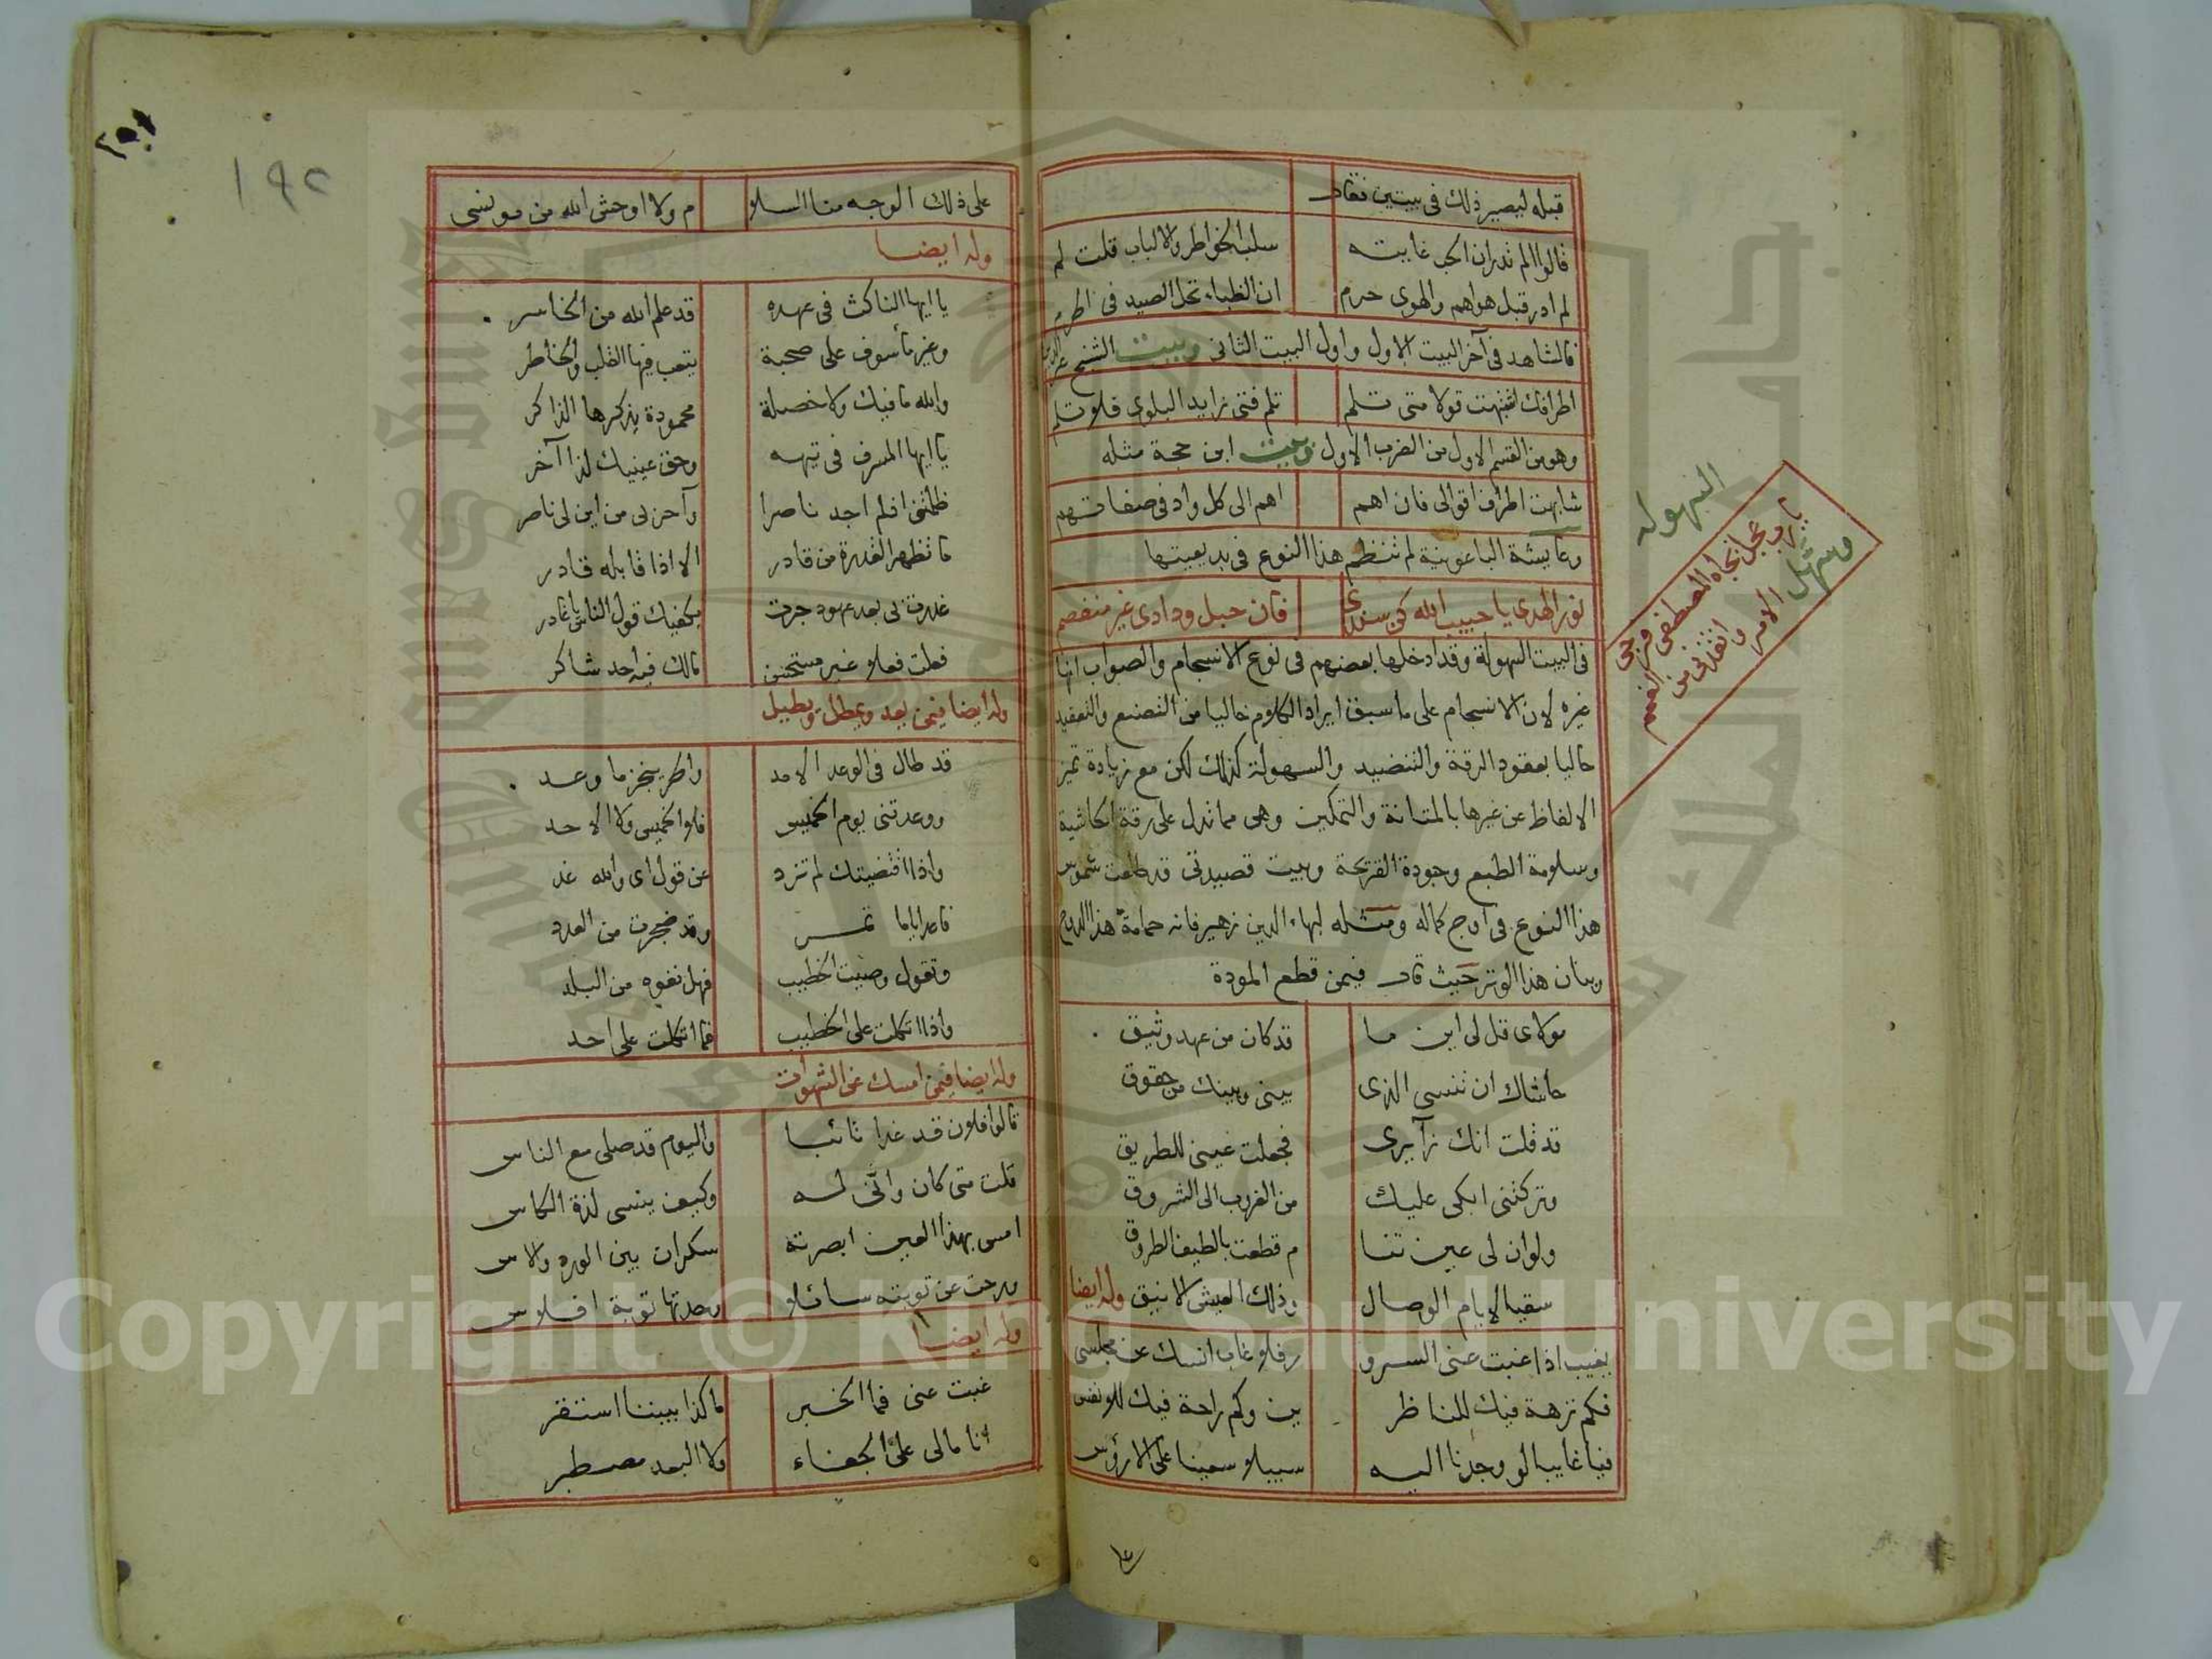 قبله ليصير ذلك في بيتين فقال
قالوا الم تدر ان الحب غايته سلب الخواطر والالباب قلت لم
لم ادر قبل هواهم والهوى حرم ان الظباء تحل الصيد في الحرم
فالشاهد في آخر البيت الاول واول البيت الثاني وبيت الشيخ عز الدين
اطرافك اشتبهت قولا متى تلم تلم فتى زايد البلوى فلا تلم
وهو من القسم الاول من الضرب الاول وبيت ابن حجة مثله
شابهت اطراف اقوالي فان اهم اهم الى كل واد في صفاتهم
وعايشة الباعونية لم تنظم هذا النوع في بديعيتها
نور الهدى يا حبيب الله كن سندى فان حبل ودادى غير منفصم
في البيت السهولة وقد ادخلها بعضهم في نوع الانسجام والصواب انها
غيره لان الانسجام على ما سبق ايراد الكلام خاليا من التصنع والتعقيد
حاليا بعقود الرقة والتنضيد والسهولة كذلك لكن مع زيادة تميز
الالفاظ عن غيرها بالمتانة والتمكين وهى مما تدل على رقة الحاشية
وسلامة الطبع وجودة القريحة وبيت قصيدتى قد طلعت شموس
هذا النوع في اوج كماله ومثله لبهاء الدين زهير فانه حمامة هذا الدوح
هذا الوتر حيث قال فيمن قطع المودة
مولاى قل لى اين ما قد كان من عهد وثيق
حاشاك ان تنسى الذى بينى وبينك من حقوق
قد قلت انك زآيرى فجعلت عينى للطريق
وتركتنى ابكى عليك من الغروب الى الشروق
ولو ان لى عين تنا م قطعت بالطيف الطروق
سقيا لايام الوصال وذلك العيش الانيق وله ايضا
يغيب اذا غبت عنى السرو ر فلا غاب انسك عن مجلسى
فكم نزهة فيك للناظر ين وكم راحة فيك للانفس
فيا غايبا لو وجدنا اليه سبيلا سعينا على الارؤس
على
السهولة
يا رب عجل بجاه المصطفى فرجى
وسهل الامر وانقذنى من الغمم
٢٥١
١٩٢
على ذلك الوجه منا السلا م ولا اوحش الله من مونسى
وله ايضا
يا ايها الناكث في عهده قد علم الله من الخاسر
وغير مأسوف على صحبة يتعب فيها القلب والخاطر
والله ما فيك ولا خصلة محمودة يذكرها الذاكر
يا ايها المسرف في تيهه وحق عينيك لذا آخر
ظلمتنى اذ لم اجد ناصرا وآحزنى من اين لى ناصر
ما تظهر القدرة من قادر الا اذا قابله قادر
غدرت بى بعد عهود جرت يكفيك قول الناس يا غادر
فعلت فعلا غير مستحسن مالك فيه احد شاكر
وله ايضا فيمن يعد ويمطل ويطيل
قد طال في الوعد الامد والحر ينجز ما وعد
ووعدتنى يوم الخميس فلا الخميس ولا الاحد
واذا اقتضيتك لم تزد عن قول اى والله غد
فاعد اياما تمر وقد ضجرت من العدد
وتقول وصيت الخطيب فهل تفوه من البلد
واذا اتكلت على الخطيب فما اتكلت على احد
وله ايضا فيمن امسك عن الشهوات
قالوا فلان قد غدا تائبا واليوم قد صلى مع الناس
قلت متى كان وانى له وكيف ينسى لذة الكاس
امس بهذا العين ابصرته سكران بين الورد والاس
ورحت عن توبته سائلا وجدتها توبة افلاس
وله ايضا
غبت عنى فما الخبر ما كذا بيننا استقر
انا مالى على الجفاء ولا البعد مصطبر
Copyright © King Saud University